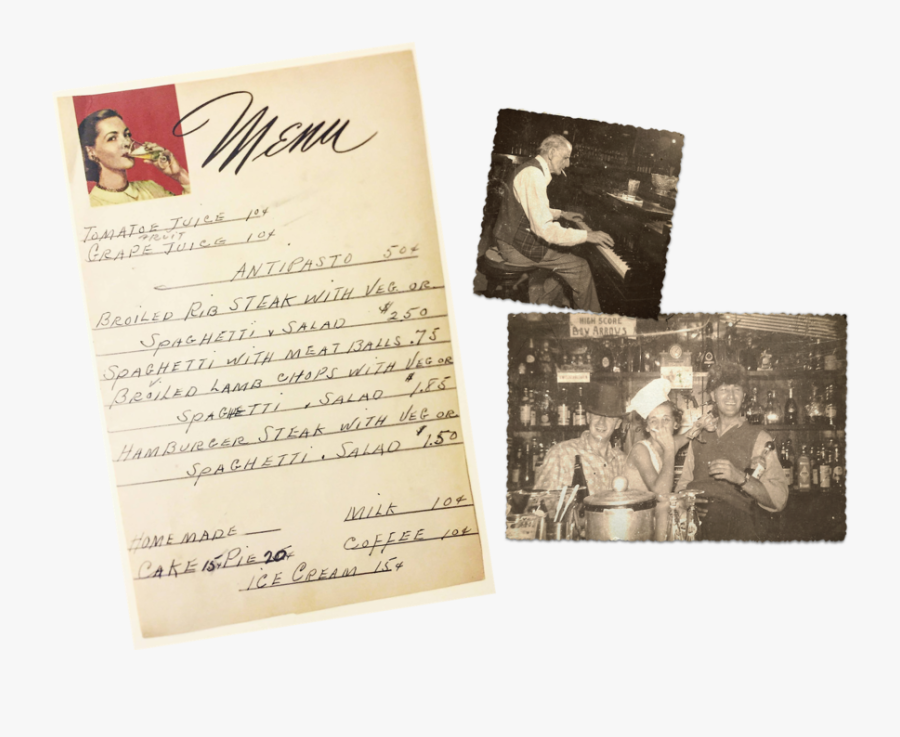 Menu
TOMATOE JUICE 10¢
FRUIT
GRAPE JUICE 10¢
ANTIPASTO 50¢
BROILED RIB STEAK WITH VEG OR
SPAGHETTI & SALAD $2.50
SPAGHETTI WITH MEAT BALLS .75
BROILED LAMB CHOPS WITH VEG OR
SPAGHETTI . SALAD $1.85
HAMBURGER STEAK WITH VEG OR
SPAGHETTI . SALAD $1.50
MILK 10¢
HOMEMADE
COFFEE 10¢
CAKE 15¢ PIE 20¢
ICE CREAM 15¢
HIGH SCORE
BEV ARROWS